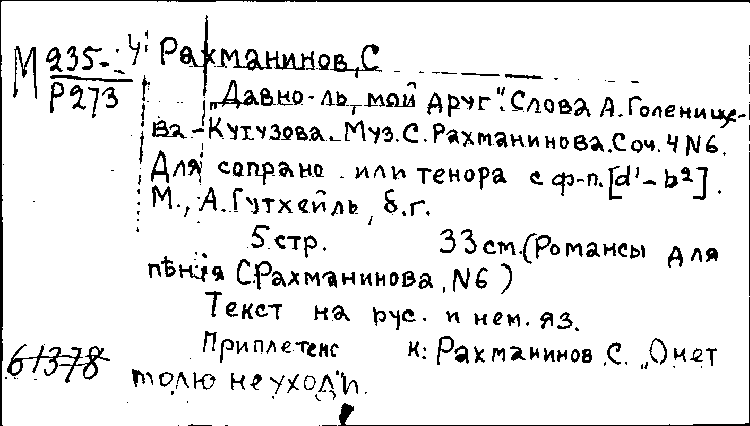 М 235-4: Рахманинов, С
Р273
„Давно-ль, мой друг". Слова А. Голенище-
ва-Кутузова. Муз. С. Рахманинова. Соч. 4 N6.
Для сопрано или тенора с ф-п. [d¹-b²].
М., А. Гутхейль, б.г.
5 стр. 33 см. (Романсы для
пѣнiя С. Рахманинова, N6)
Текст на рус. и нем. яз.
Приплетено к: Рахманинов С. „О нет
молю не уходи".
61378